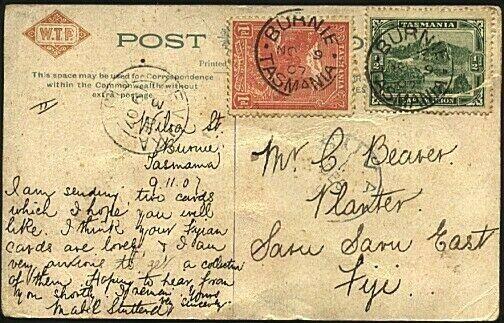 W.T.P.
POST
Printed
This space may be used for Correspondence
within the Commonwealth without
extra postage.
II
Wilson St
Burnie
Tasmania
9.11.07
I am sending two cards
which I hope you will
like. I think your Fijian
cards are lovely & I am
very anxious to get a collection
of them. Hoping to hear from
you shortly I remain yours
very sincerely
Mabel
BURNIE
TASMANIA
1d
TASMANIA
1d
BURNIE
TASMANIA
TASMANIA
½d
½d
Mr C Beaver
Planter
Savu Savu East
Fiji.